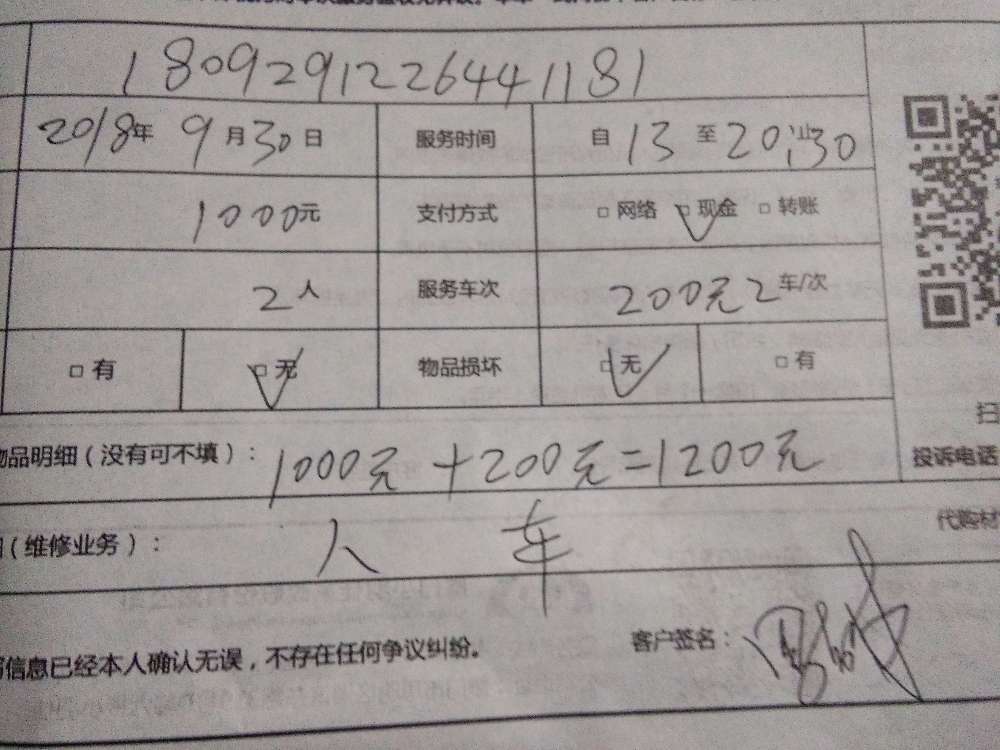 1809291226441181
2018年 9月30日 服务时间 自13至20:30止
1000元 支付方式 □ 网络 □ 现金 □ 转账
2人 服务车次 200元2车/次
□ 有 □ 无 物品损坏 □ 无 □ 有
扫
物品明细（没有可不填）： 1000元+200元=1200元
投诉电话
代购材
（维修业务）： 人 车
客户签名：
信息已经本人确认无误，不存在任何争议纠纷。